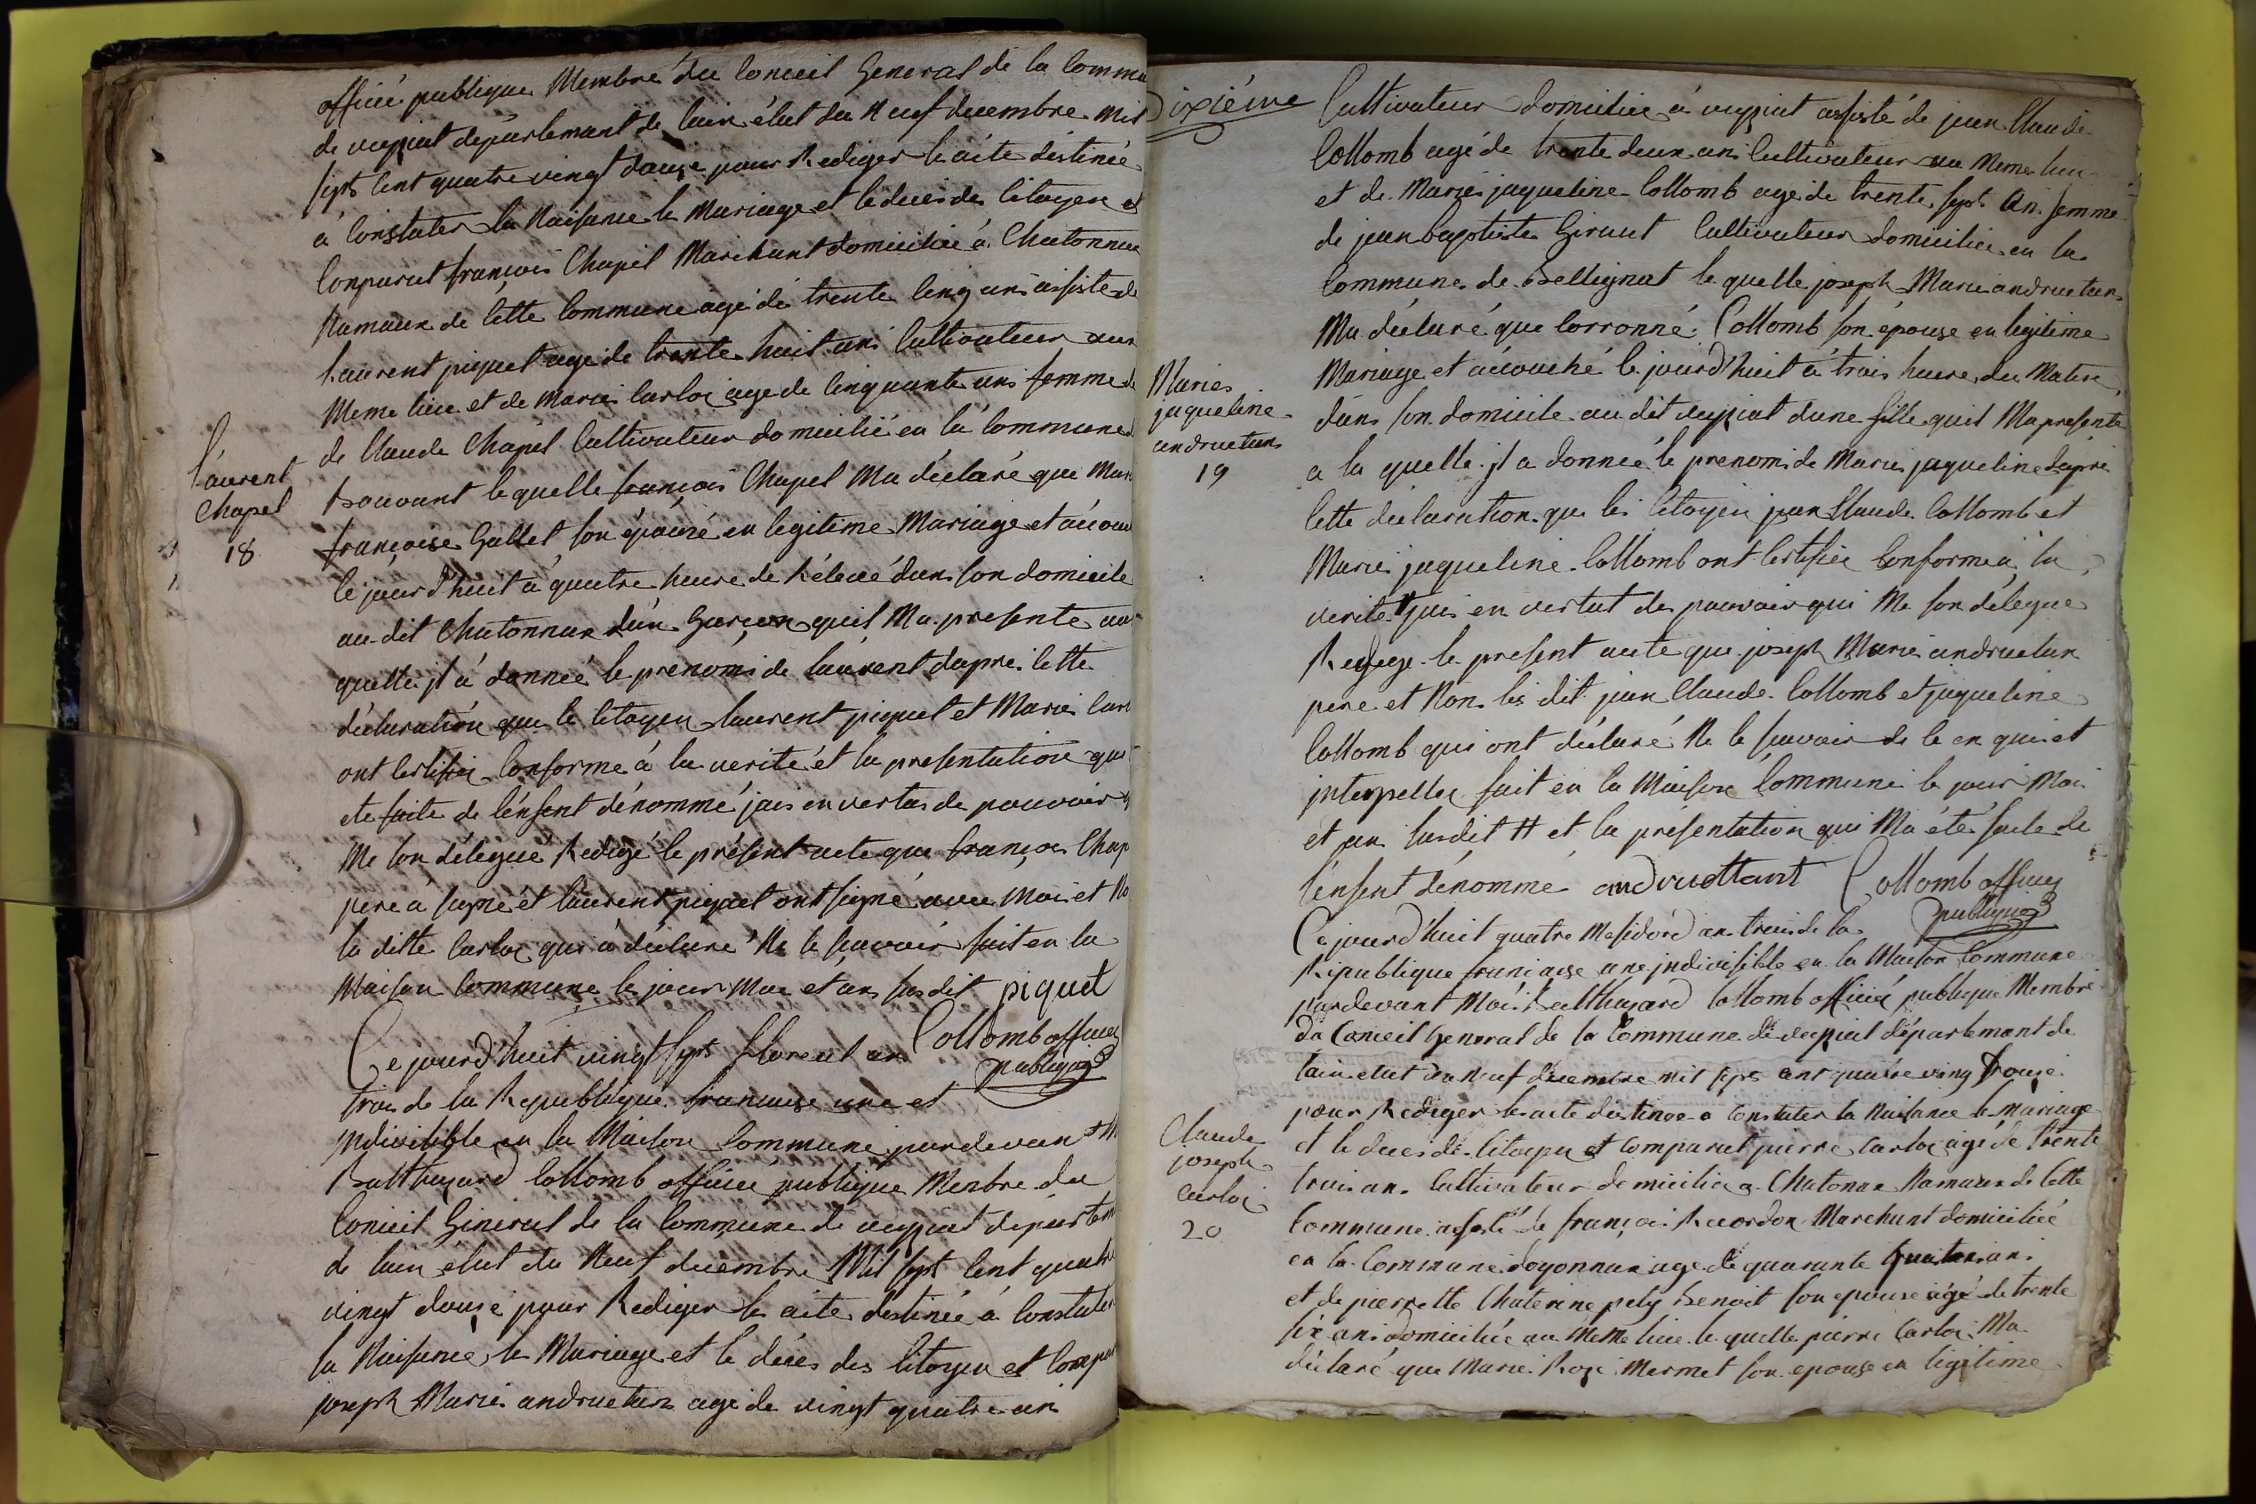 officié publique Membre du Conceil General de la Commu
de veyziat departemant de lain élut du Neuf decembre mil
sept Cent quatre vingt douze pour Rediger le acte destinée
à Constater la Naisance le Mariage et le deces des Citoyen et
Conparut françois Chapel Marchant domicilié à Chatonnax
hamaux de Cette Commune agé de trente cinq ans assisté de
Laurent piquet age de trente huit ans Cultivateur aux
Meme lieu et de Marie Carloz age de Cinquante ans femme de
de Claude Chapel Cultivateur domicilié en la Commune
Laurent
Chapel
18
bouvant le quelle françois Chapel Ma déclaré que Mari
françoise Gallet son épouse en legitime Mariage et acou
le jourd'huit à quatre heure de Relevé dans son domicile
au dit Chatonnax d'un Garçon quil Ma presente au
quelle jl à donnée le prenom de laurent dapres Cette
déclaration que le Citoyen laurent piquet et Marie Carl
ont Certifiéz Conforme à la verité et la presentation qui
ete faite de l'énfent dénommé jais en vertus de pouvoir q
Me son délegué Redigé le présent acte que françois Chap
pere à signé et laurent piquet ont signé avec Moi et No
la ditte Carloz qui à déclaré Ne le savoir fait en la
Maison Commune le jour Moi et ans susdit piquet
Collomb officié
publique
Ce jourd'huit vingt sept floreal an
trois de la Republique francaise une et
jndivisible en la Maison Commune pardevant M
Balthazard Collomb officié publique Membre du
Conceil General de la Commune de veyziat departem
de lain elut du Neuf decembre Mil sept Cent quatre
vingt douze pour Rediger le acte destinée à Constater
la Naisance le Mariage et le déces des Citoyen et Compar
joseph Marie andruetan agé de vingt quatre ans
Dixiéme
Cultivateur domicilié à veyziat assisté de jean Claude
Collomb agé de trente deux ans Cultivateur au Meme lieu
et de Marie jaqueline Collomb age de trente sept An femme
de jean baptiste Giraut Cultivateur domicilié en la
Commune de Bellignat le quelle joseph Marie andruetan
Ma déclaré que Corronné Collomb son épouse en legitime
Mariage et acouché le jourd'huit à trois heure du Matin
Marie
jaqueline
andruetan
19
dans son domicile au dit veyziat dune fille quil Ma presente
a la quelle jl a donnée le prenom de Marie jaqueline dapre
Cette declaration que les Citoyen jean Claude Collomb et
Marie jaqueline Collomb ont Certifiée Conforme à la
verité # jais en vertut de pouvoir qui Me son délegue
Redige le present acte que joseph Marie andruetan
pere et Non les dit jean Claude Collomb et jaqueline
Collomb qui ont déclaré Ne le savoir de le en quis et
jnterpellez fait en la Maison Commune le jour Moi
et an susdit # et la presentation qui Ma été faite de
l'énfent dénommé andruottant Collomb officié
publique
Ce jourd'huit quatre Mesidord an trois de la
Republique francaise une jndivisible en la Maison Commune
pardevant Moi Balthazard Collomb officié publique Membre
Du Conceil General de la Commune de veyziat département de
lain elut du Neuf decembre mil sept cent quatre ving douze
pour Rediger le acte destinée a constater la Naisance le mariage
Claude
joseph
Carloz
20
et le deces de Citoyen et comparut pierre Carloz agé de trente
trois ans Cultivateur domicilié a Chatonax hamaux de Cette
Commune assisté de françoi Recordon Marchant domicilié
en la Commune doyonnax age de quarante quatre ans
et de pierrette Chaterine pely benoit son epouse agé de trente
six ans domiciliée au meme lieu le quelle pierre Carloz Ma
déclaré que Marie Roze Mermet son epouse en legitime